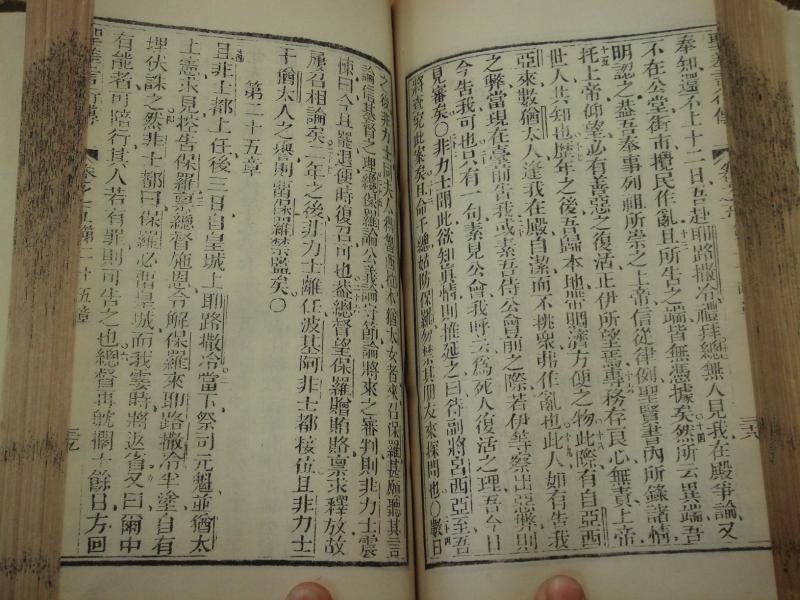 聖差言行傳
卷之五
奉知還不上十二日吾赴耶路撒冷禮拜總無人見我在殿爭論又
不在公堂街市攪民作亂且所告之端皆無憑據矣然所云異端吾
明認之蓋吾奉事列祖所崇之上帝信從律例聖賢書內所錄諸情
托上帝仰望必有善惡之復活正伊所望焉專務存良心無責上帝
世人共知也歷年之後吾歸本地帶賙濟方便之物此際有自亞西
亞來數猶太人逢我在殿自潔而不挑衆弗作亂也此人如有告我
之弊當現在臺前告我或素吾侍公會前之際若伊等察出惡弊則
今告我可也只有一句素見公會我呼云爲死人復活之理吾今日
見審矣○非力士聞此欲知眞情則推延之曰待副將呂西亞至吾
將查究此案矣且命千總姑防保羅勿禁其朋友來探問也○數日
之後非力士同夫人猶太女者來召保羅甚願聽其言
論信基督之理總保羅論公義論守節論將來之審判則非力士震
悚曰今且罷退便時復召可也蓋總督望保羅贈賄賂禀求釋放故
屢召相論矣二年之後非力士離任波基阿非士都接位且非力士
干猶太人之譽則留保羅禁監矣○
第二十五章
且非士都上任後三日自皇城上耶路撒冷當下祭司元魁並猶太
上憲求見控告保羅禀總督施恩令解保羅來耶路撒冷半塗自有
埋伏誅之然非士都曰保羅必留皇城而我霎時將返省又曰爾中
有能者可陪行其人若有罪則可告之也總督再躭擱十餘日方回
聖差言行傳
卷之五第二十五章